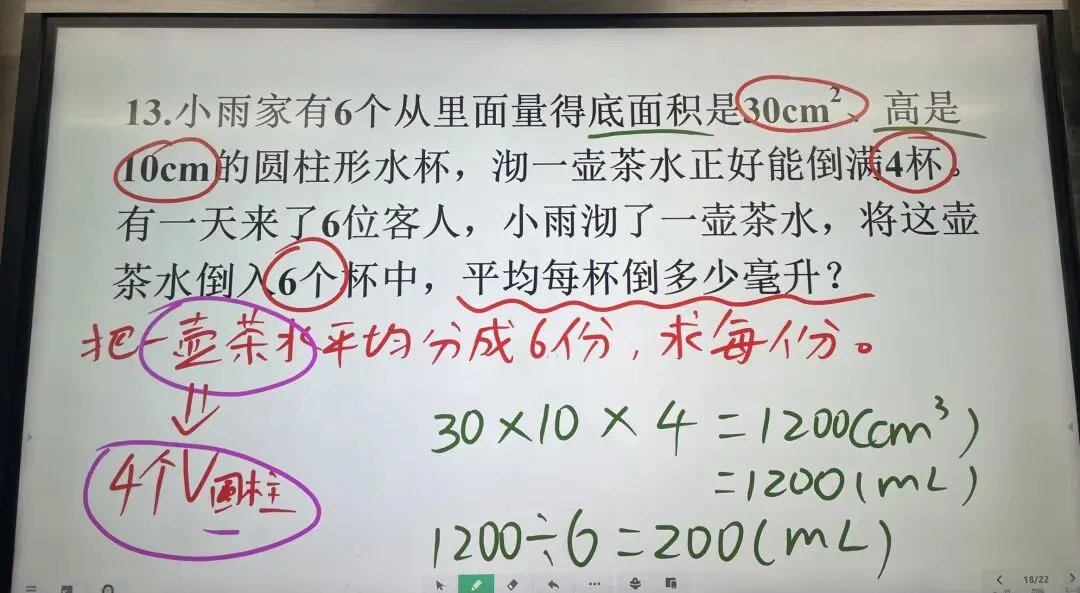 13.小雨家有6个从里面量得底面积是30cm²、高是
10cm的圆柱形水杯，沏一壶茶水正好能倒满4杯。
有一天来了6位客人，小雨沏了一壶茶水，将这壶
茶水倒入6个杯中，平均每杯倒多少毫升？
把一壶茶水平均分成6份，求每份。
4个V圆柱
30×10×4=1200(cm³)
=1200(mL)
1200÷6=200(mL)
18/22